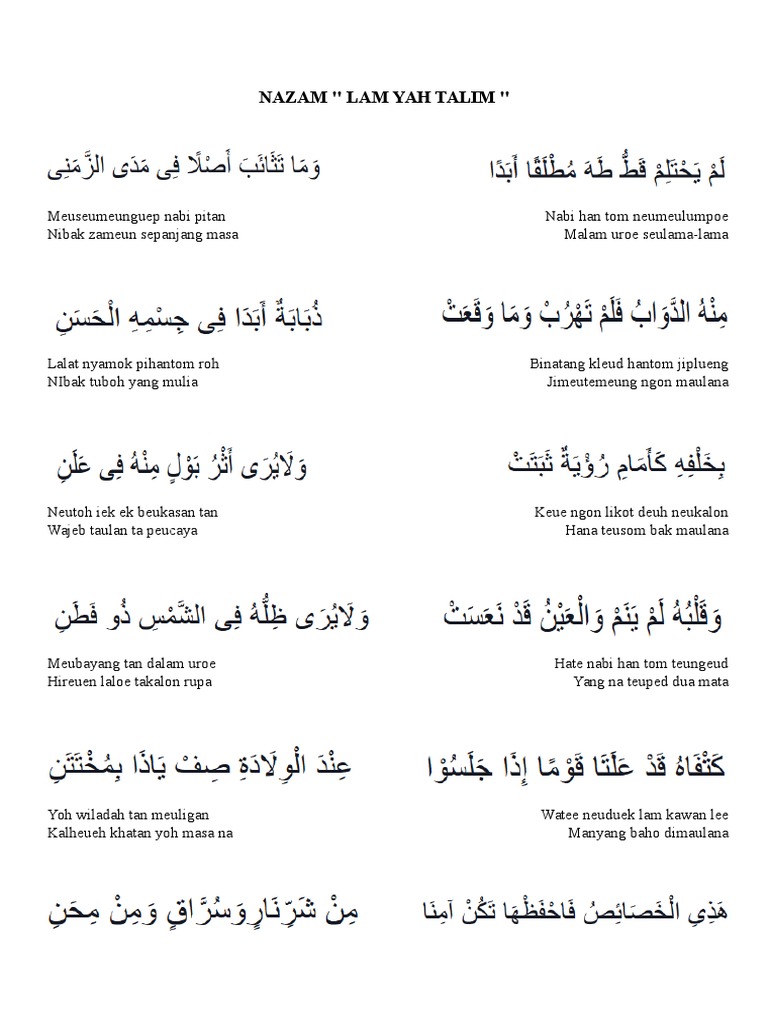 NAZAM " LAM YAH TALIM "
لَمْ يَحْتَلِمْ قَطُّ طَهَ مُطْلَقًا أَبَدًا
وَمَا تَثَائَبَ أَصْلًا فِى مَدَى الزَّمَنِى
Nabi han tom neumeulumpoe
Malam uroe seulama-lama
Meuseumeunguep nabi pitan
Nibak zameun sepanjang masa
مِنْهُ الدَّوَابُ فَلَمْ تَهْرُبْ وَمَا وَقَعَتْ
ذُبَابَةٌ أَبَدَا فِى جِسْمِهِ الْحَسَنِ
Binatang kleud hantom jiplueng
Jimeutemeung ngon maulana
Lalat nyamok pihantom roh
NIbak tuboh yang mulia
بِخَلْفِهِ كَأَمَامِ رُؤْيَةٌ ثَبَتَتْ
وَلَايُرَى أَثْرُ بَوْلٍ مِنْهُ فِى عَلَنِ
Keue ngon likot deuh neukalon
Hana teusom bak maulana
Neutoh iek ek beukasan tan
Wajeb taulan ta peucaya
وَقَلْبُهُ لَمْ يَنَمْ وَالْعَيْنُ قَدْ نَعَسَتْ
وَلَايُرَى ظِلُّهُ فِى الشَّمْسِ ذُو فَطَنِ
Hate nabi han tom teungeud
Yang na teuped dua mata
Meubayang tan dalam uroe
Hireuen laloe takalon rupa
كَتْفَاهُ قَدْ عَلَتَا قَوْمًا إِذَا جَلَسُوْا
عِنْدَ الْوِلَادَةِ صِفْ يَاذَا بِمُخْتَتَنِ
Watee neuduek lam kawan lee
Manyang baho dimaulana
Yoh wiladah tan meuligan
Kalheueh khatan yoh masa na
هَذِي الْخَصَائِصُ فَاحْفَظْهَا تَكُنْ آمِنَا
مِنْ شَرِّنَارٍوَسُرَّاقٍ وَمِنْ مِحَنِ